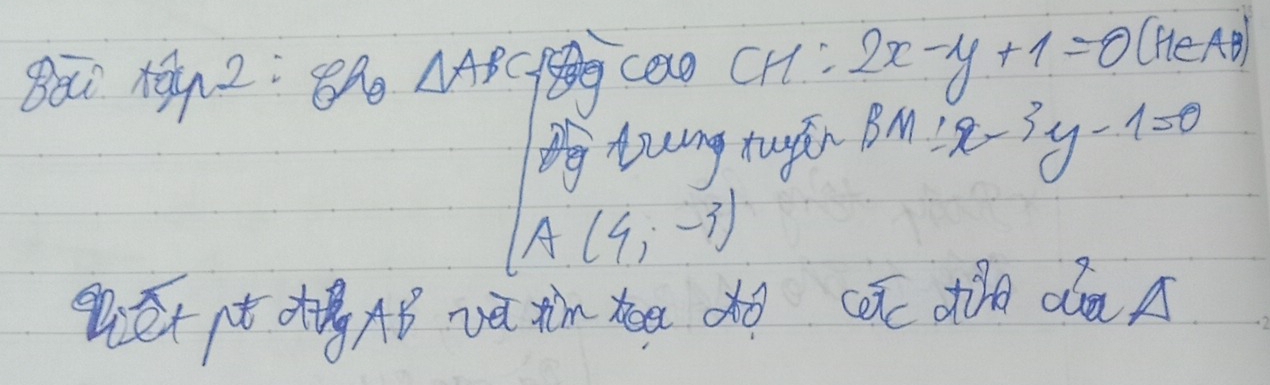 Bài tập 2: Cho ΔABC {Đg cao CH: 2x-y+1=0 (H∈AB)
Đg trung tuyến BM: x-3y-1=0
A (4; -3)
Viết pt đthg AB và tìm tọa độ các đỉnh của Δ